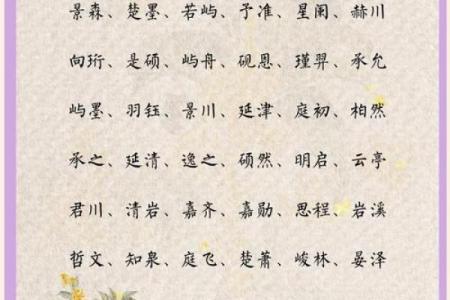 景森、楚墨、若屿、予准、星阑、赫川
向珩、是硕、屿舟、砚恩、瑾羿、承允
屿墨、羽钰、景川、延津、庭初、柏然
承之、延清、逸之、硕然、明启、云亭
君川、清岩、嘉齐、嘉勋、思程、岩溪
哲文、知泉、庭飞、楚萧、峻林、晏泽